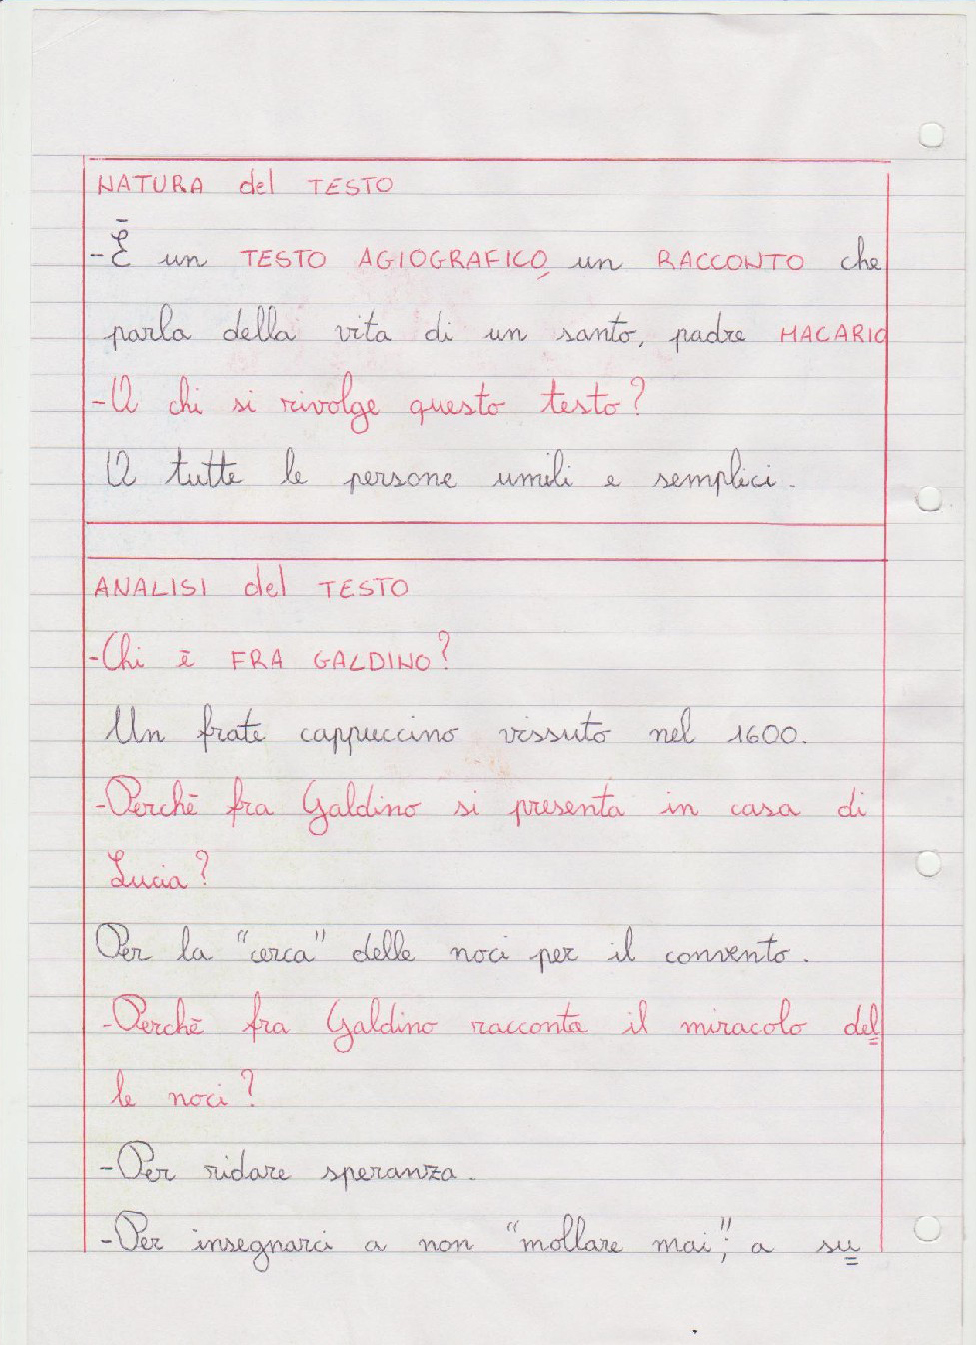 NATURA del TESTO
-Ē un TESTO AGIOGRAFICO, un RACCONTO che
parla della vita di un santo, padre MACARIO
-A chi si rivolge questo testo?
A tutte le persone umili e semplici.
ANALISI del TESTO
-Chi ē FRA GALDINO?
Un frate cappuccino vissuto nel 1600.
-Perchē fra Galdino si presenta in casa di
Lucia?
Per la "cerca" delle noci per il convento.
-Perchē fra Galdino racconta il miracolo del=
le noci?
-Per ridare speranza.
-Per insegnarci a non "mollare mai"; a su=